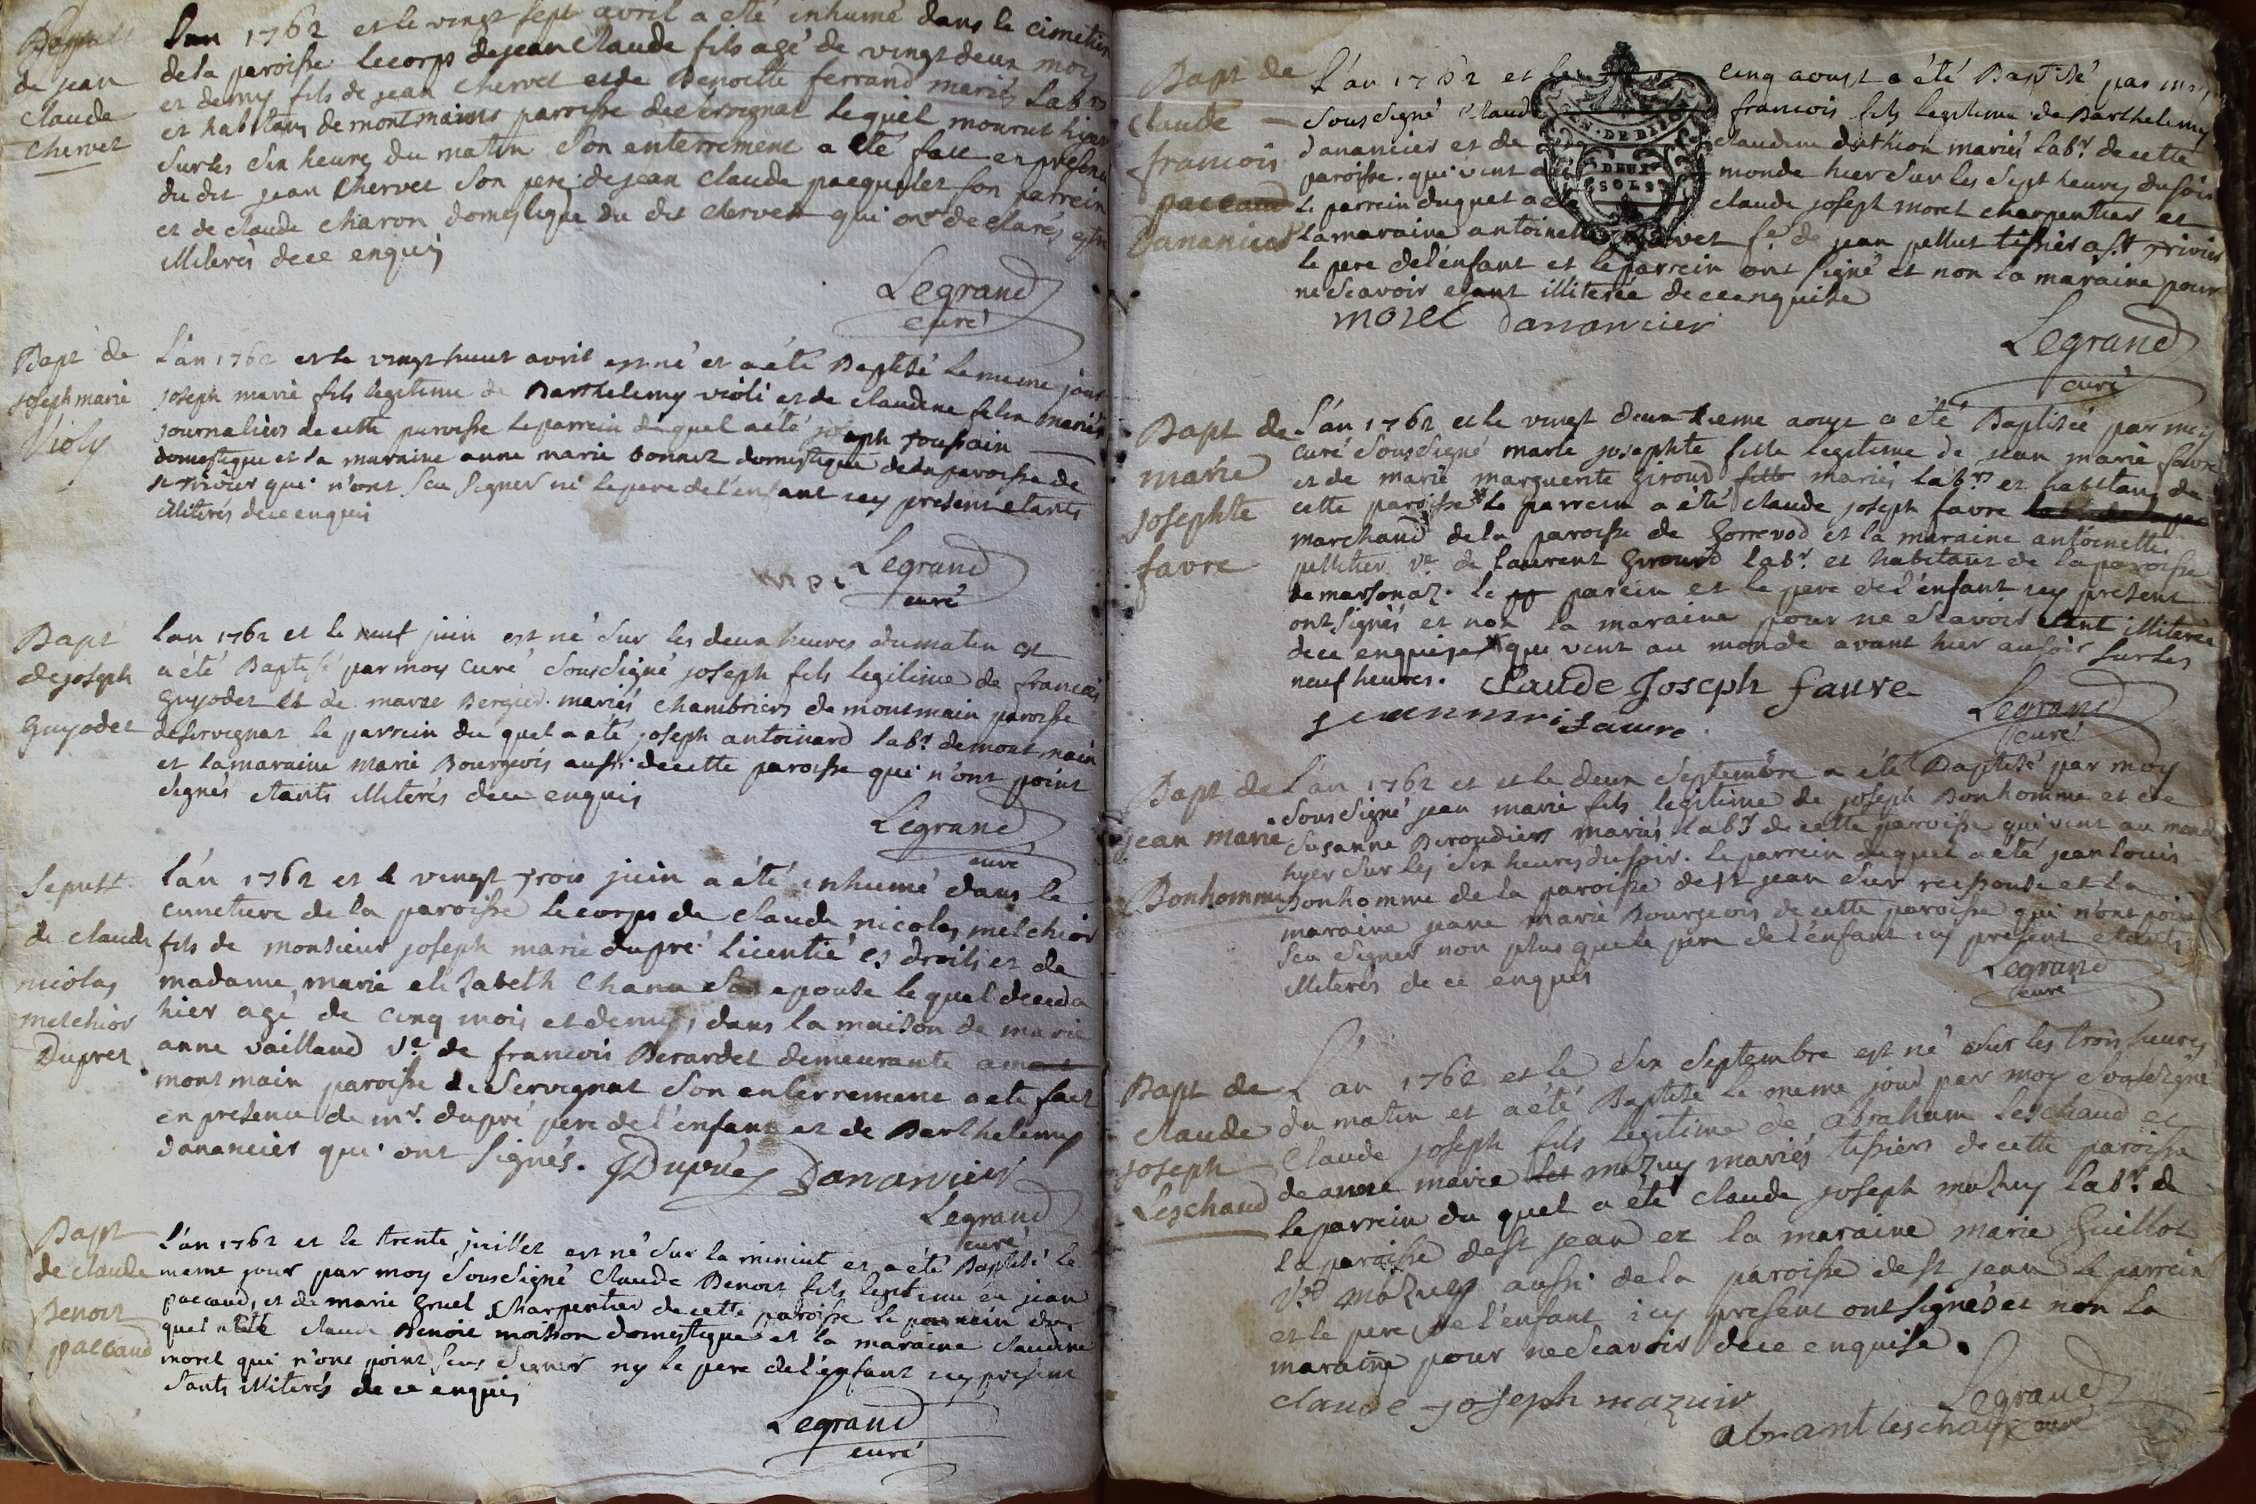 de jean
Claude
Chervet
Lan 1762 et le vingt sept avril a eté inhumé dans le cimetier
dela paroisse lecorps dejean Claude fils agé de vingt deux moy
et demy fils de jean Chervet et de Benoitte ferrand mariés Labrs
et habitans de montmains parroisse de servignat lequel mourut hyer
sur les six heures du matin Son enterrement a eté fait en présence
du dit jean Chervet Son pere de jean Claude pacquelet son parrein
et de Claude Charon domestique du dit Chervet qui ont declarés estre
illiterés de ce enquis
Legrand
curé
Bapt de
joseph marie
Violy
L'an 1762 et le vingt huit avril est né et a été Baptisé le meme jour
joseph marie fils legitime de Barthelemy violi et de claudine felix mariés
journaliers de cette paroisse le parrein du quel a été joseph toussain
domestique et la maraine anne marie Bonnet domestique de la paroisse de
st trivier qui n'ont Seu Signer ni le pere de l'enfant icy present etants
illiterés de ce enquis
Legrand
curé
Bapt
de joseph
Guyodet
Lan 1762 et le neuf juin est né sur les deux heures du matin et
a été Baptisé par moy curé Soussigné joseph fils legitime de francois
Guyodet et de marie Bergier mariés chambriers de montmain paroisse
de Servignat le parrein du quel a été joseph antoinard labr de mont main
et la maraine marie Bourgeois aussi de cette paroisse qui n'ont point
Signés étants illiterés de ce enquis
Legrand
curé
Sepult
de claude
nicolas
melchior
Dupret
L'an 1762 et le vingt trois juin a été inhumé dans le
cimetiere de la paroisse le corps de Claude nicolas melchior
fils de monsieur joseph marie dupré licentié es droits et de
madame marie elizabeth Chana son epouse le quel deceda
hier agé de cinq mois et demy, dans la maison de marie
anne vailland ve de francois Berardet demeurante a
mont main paroisse de Servignat Son enterrement a eté fait
en presence de mr. dupré pere de l'enfant et de Barthelemy
dananciér qui ont signés. Duprés Dananciér
Legrand
curé
Bapt
de claude
Benoit
paccaud
L'an 1762 et le trente juillet est né sur la minuit et a été Baptisé le
meme jour par moy Soussigné Claude Benoit fils legitime de jean
paccaud, et de marie Gruel Charpentier de cette paroisse le parrein du
quel a été claude Benoit moisson domestique et la maraine claudine
morel qui n'ont point seus Signer ny le pere de l'enfant icy present
étants illiterés de ce enquis
Legrand
curé
Bapt de
Claude
francois
paccaud
Dananciér
L'an 1762 et le cinq aoust a été Baptisé par moy
Soussigné Claude francois fils legitime de Barthelemy
dananciér et de claudine duthion mariés labr. de cette
paroisse. qui vint au monde hier sur les sept heures du soir
le parrein duquel a eté claude joseph morel charpentier et
la maraine antoinette fe. de jean pellut tissier a St trivier
le pere de l'enfant et le parrein ont signé et non la maraine pour
ne scavoir etant illiterée de ce enquise
DEUX
SOLS
morel dananciér
Legrand
curé
Bapt de
marie
josephte
favre
L'an 1762 et le vingt deuxieme aoust a été Baptisée par moy
curé Soussigné marie josephte fille legitime de jean marie favre
et de marie marguerite Giroud mariés labrs et habitans de
cette paroisse * le parrein a été claude joseph favre
marchand de la paroisse de Gorrevod et la maraine antoinette
pelletier ve de laurent Giroud labr et habitant de la paroisse
de marsonaz. le parein et le pere de l'enfant icy present
ont signés et non la maraine pour ne scavoir etant illiterée
de ce enquise * qui vint au monde avant hier au soir sur les
neuf heures. Claude Joseph favre
Legrand
curé
Bapt de
jean marie
Bonhomme
L'an 1762 et et le deux Septembre a été Baptisé par moy
Soussigné jean marie fils legitime de joseph Bonhomme et de
Susanne Beroudier mariés labr de cette paroisse qui vint au monde
hyer sur les six heures du soir. le parrein duquel a été jean louis
Bonhomme de la paroisse de st jean sur reissouse et la
maraine jeane marie Bourgeois de cette paroisse qui n'ont point
Seu Signer non plus que le pere de l'enfant icy present étants
illiterés de ce enquis
Legrand
curé
Bapt de
Claude
joseph
Leschaud
L'an 1762 et le six Septembre est né sur les trois heures
du matin et a été Baptisé le meme jour par moy Soussigné
Claude joseph fils legitime de abraham Leschaud et
de anne marie mazuy mariés tissiers de cette paroisse
le parrein du quel a été Claude joseph mazuy labr. de
la paroisse de st jean et la maraine marie Guillot
ve mazuy aussi de la paroisse de st jean le parrein
et le pere de l'enfant icy present ont signés et non la
maraine pour ne scavoir de ce enquise.
claude joseph mazuir
Legrand
curé